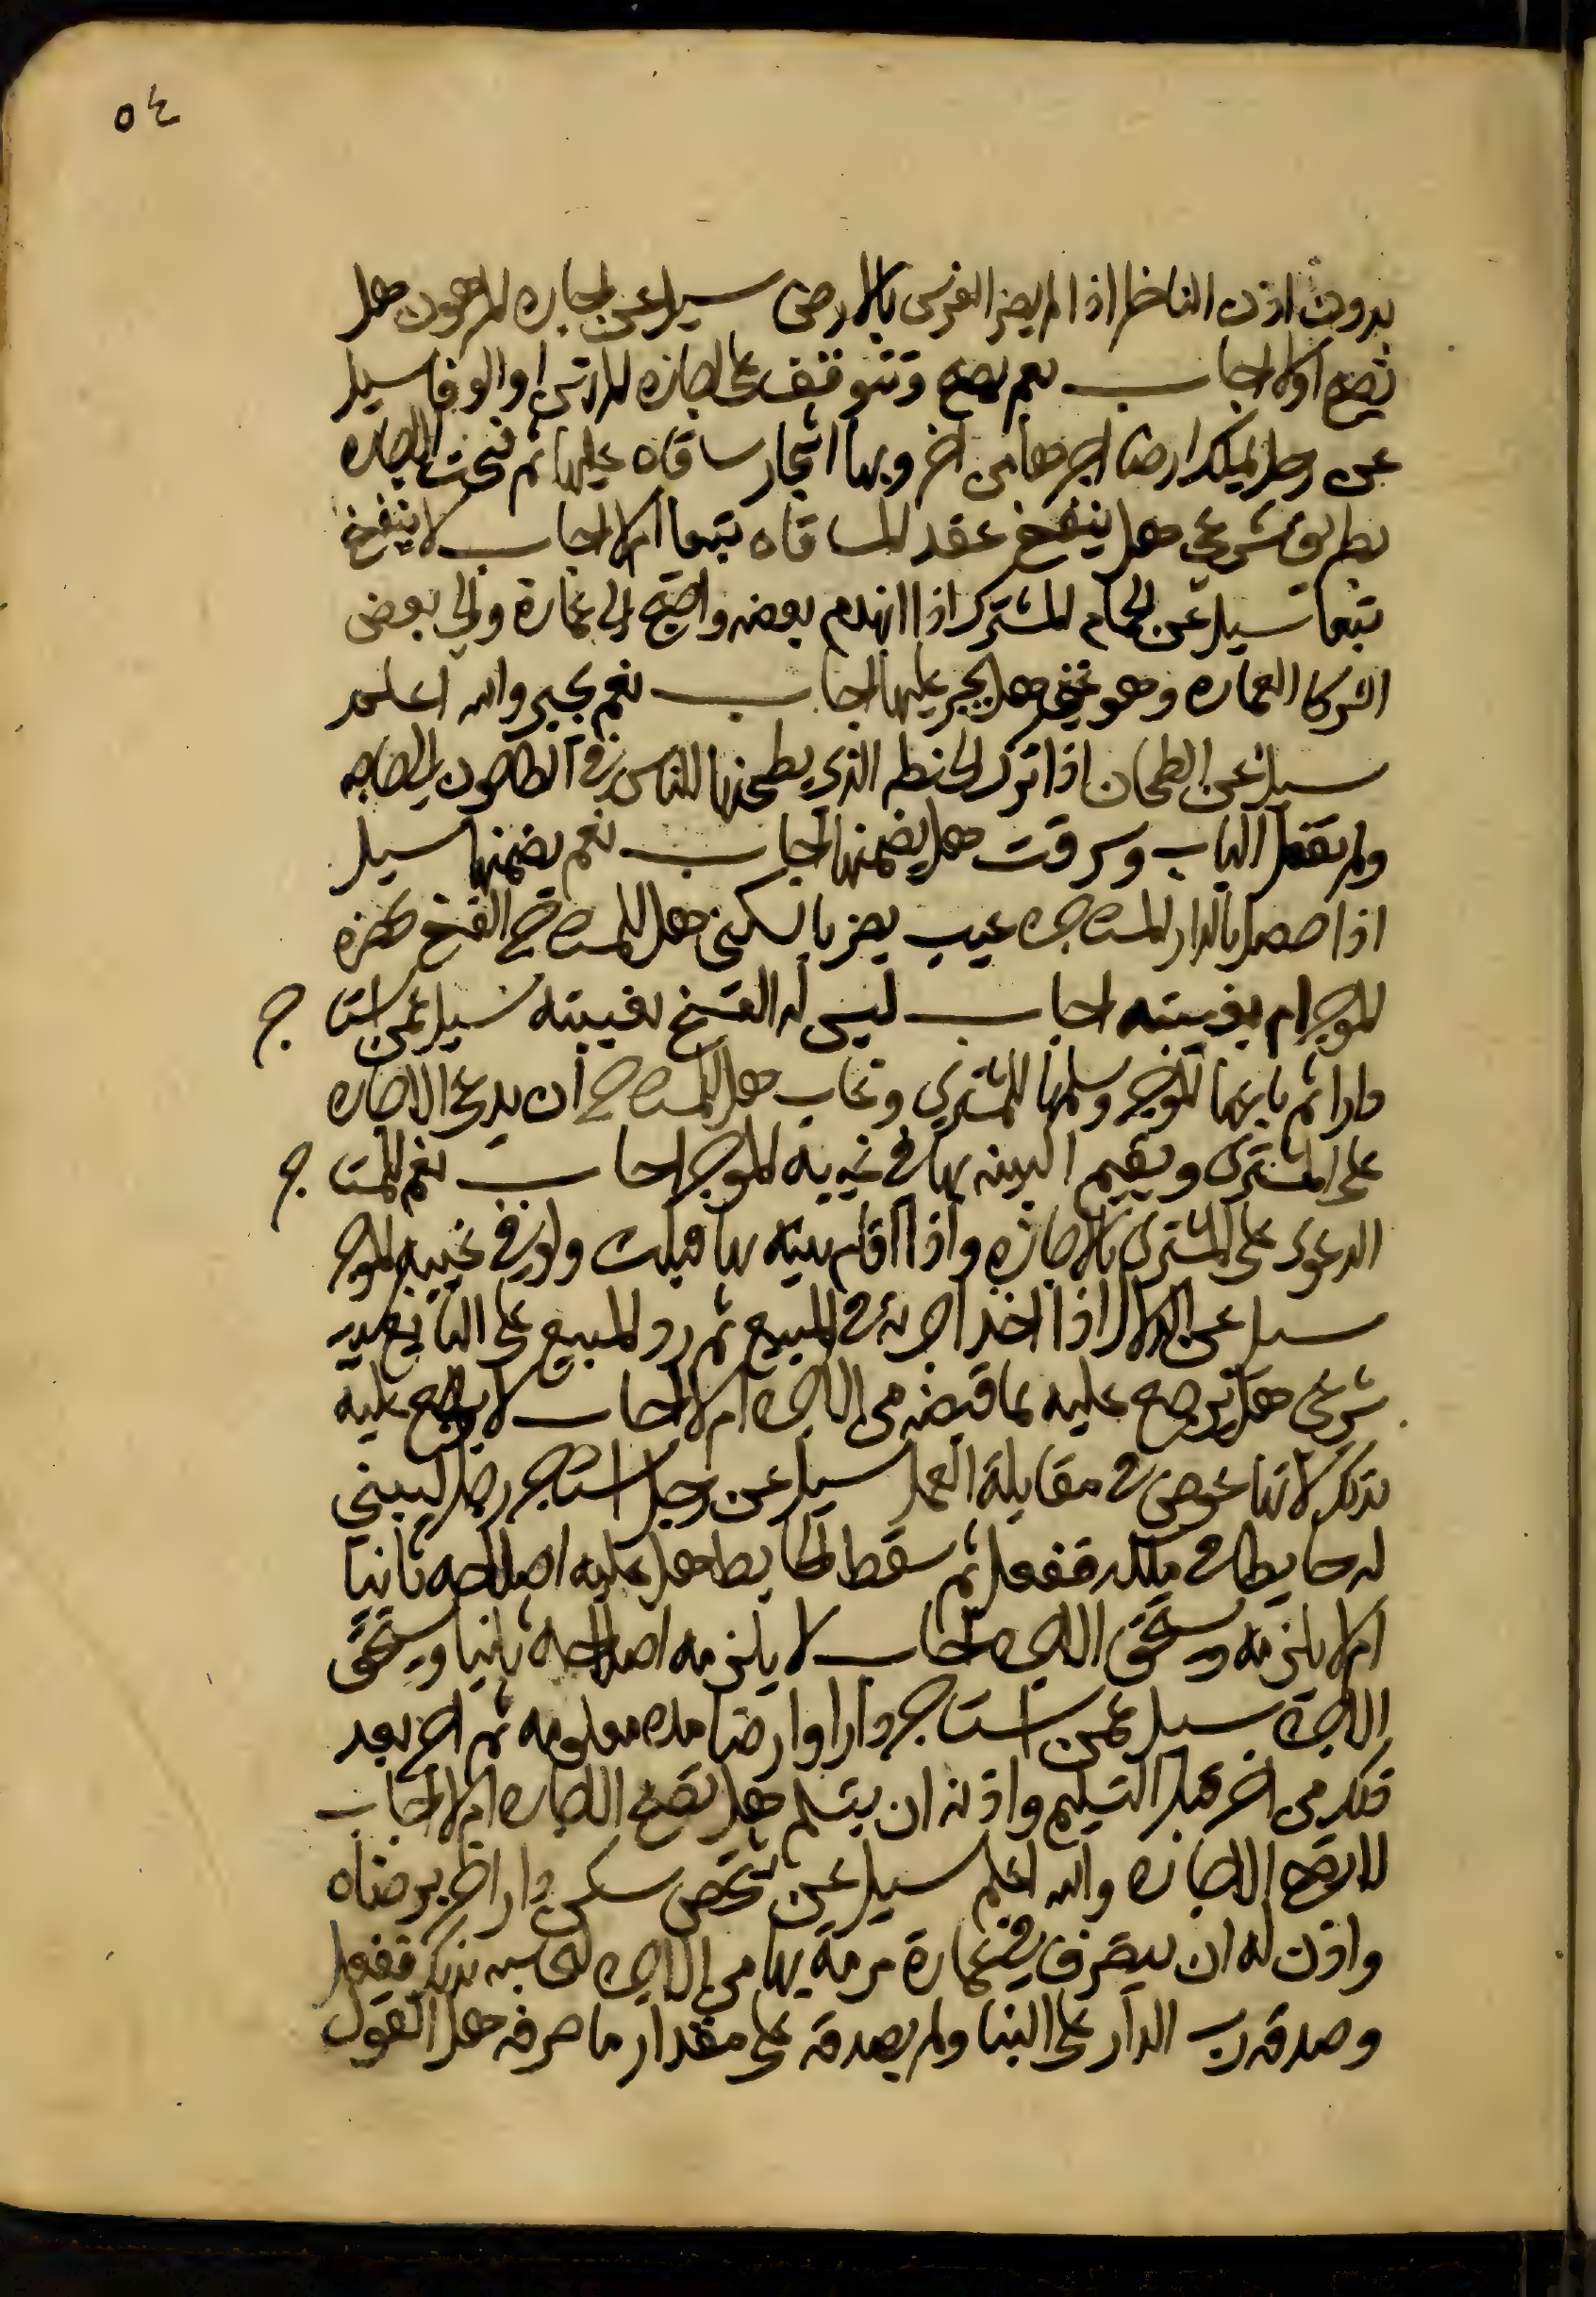 ٥٤
بدون اذن الناظر اذا لم يضر الغرس بالارض سيل عن اجاره المرهون هل
تصح اولا اجاب نعم تصح وتتوقف على اجازه المرتهن او الوفا سيل
عن رجل يملك ارضا اجرها من اخر وبها اشجار ساقاه عليها ثم فسخت الاجاره
بطريق شرعي هل ينفسخ عقد المساقاه تبعا ام لا اجاب لا ينفسخ
تبعا سيل عن الحمام المشترك اذا انهدم بعضه واحتيج الى عمارة وابى بعض
الشركا العماره وهو غني هل يجبر عليها اجاب نعم يجبر والله اعلم
سيل عن الطحان اذا ترك الحنطه الذي يطحنها للناس في الطاحون لحاجه
ولم يقفل الباب وسرقت هل يضمنها اجاب نعم يضمنها سيل
اذا حصل بالدار المستاجره عيب يضر بالسكنى هل للمستاجر الفسخ بحضرة
الموجر ام بغيبته اجاب ليس له الفسخ بغيبته سيل عمن استاجر
دارا ثم باعها الموجر وسلمها للمشتري وغاب هل للمستاجر ان يدعي الاجاره
على المشتري ويقيم البينه بها في غيبة الموجر اجاب نعم للمستاجر
الدعوى على المشتري بالاجاره واذا اقام بينه بها قبلت ولو في غيبه الموجر
سيل عن الدلال اذا اخذ اجرته في المبيع ثم رد المبيع على البايع بعيب
شرعي هل يرجع عليه بما قبضه من الاجره ام لا اجاب لا يرجع عليه
بذلك لانها عوض في مقابلة العمل سيل عن رجل استاجر رجلا ليبني
له حايطا في ملكه ففعل ثم سقط الحايط هل عليه اصلاحه ثانيا
ام لا يلزمه ويستحق الاجره اجاب لا يلزمه اصلاحه ثانيا ويستحق
الاجره سيل عمن استاجر دارا او ارضا مده معلومه ثم اجر بعد
ذلك من اخر قبل التسليم واذنه ان يتسلم هل تصح الاجاره ام لا اجاب
لا تصح الاجاره والله اعلم سيل عن شخص سكن دار اخر برضاه
واذن له ان يصرف في عمارة مرمة بها من الاجره ليحاسبه بذلك ففعل
وصدقه رب الدار على البنا ولم يصدقه على مقدار ما صرفه هل القول